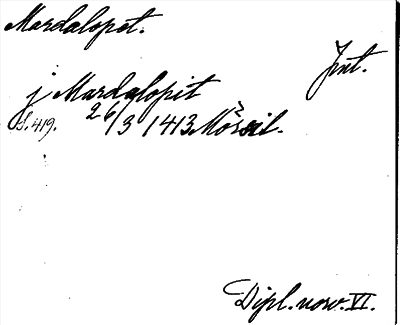 Mardalopet.
Jmt.
j Mardalopit
s. 419. 26/3 1413 Mörsil.
Dipl. norv. VI.